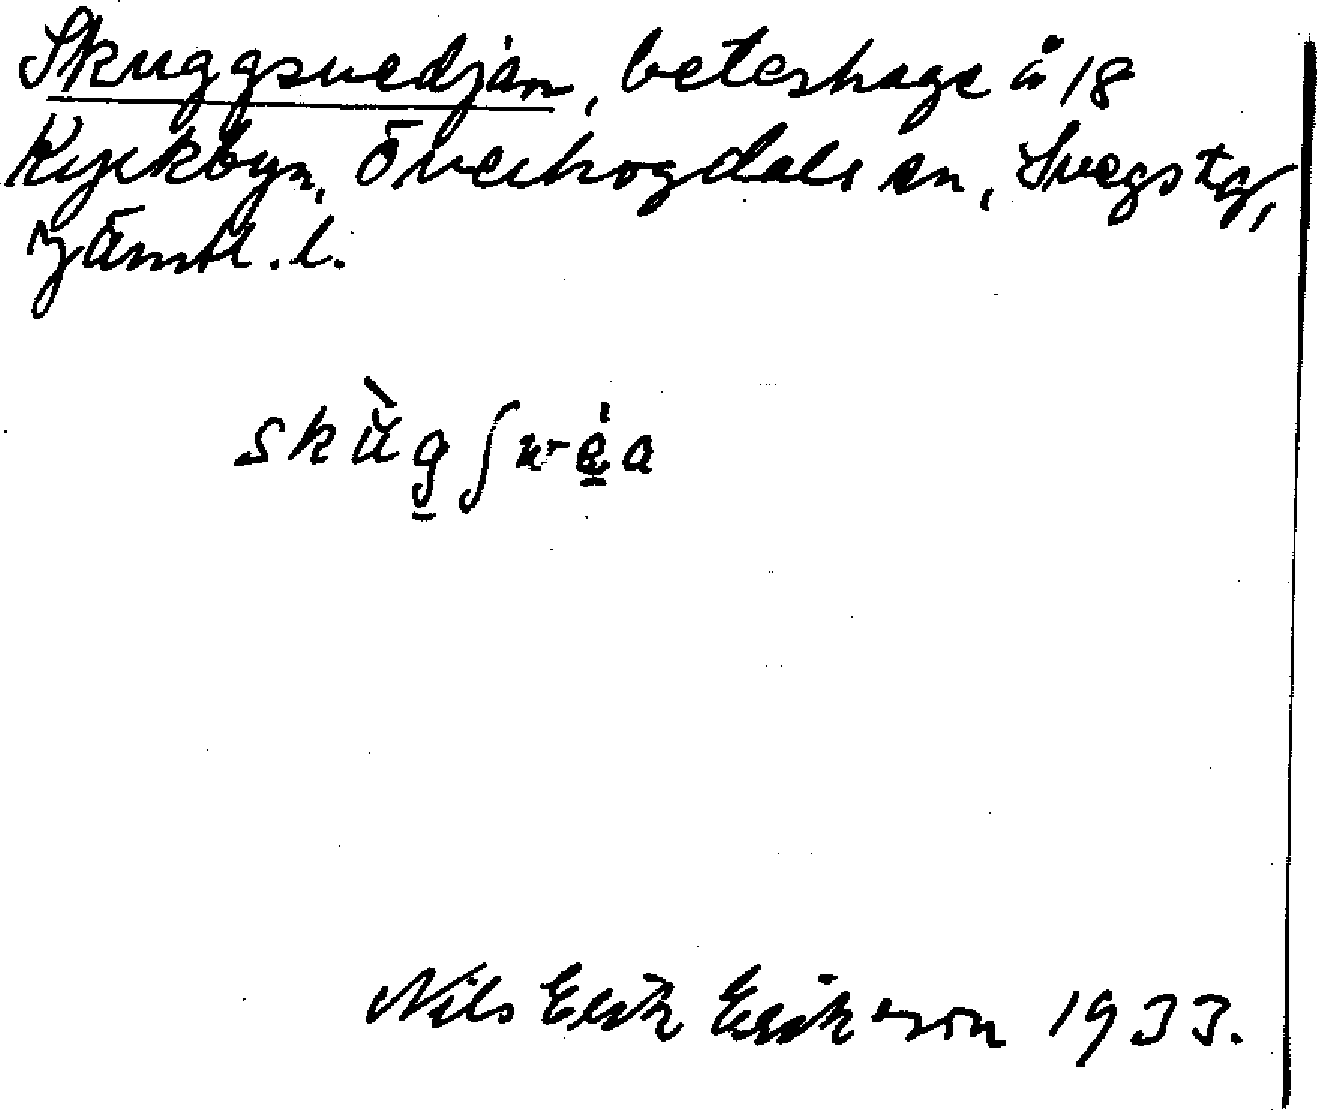 Skuggsvedjan, beteshage å 18
Kyrkbyn, Överhogdals sn, Svegs tg,
Jämtl. l.
skùgʃwéa
Nils Erik Eriksson 1933.